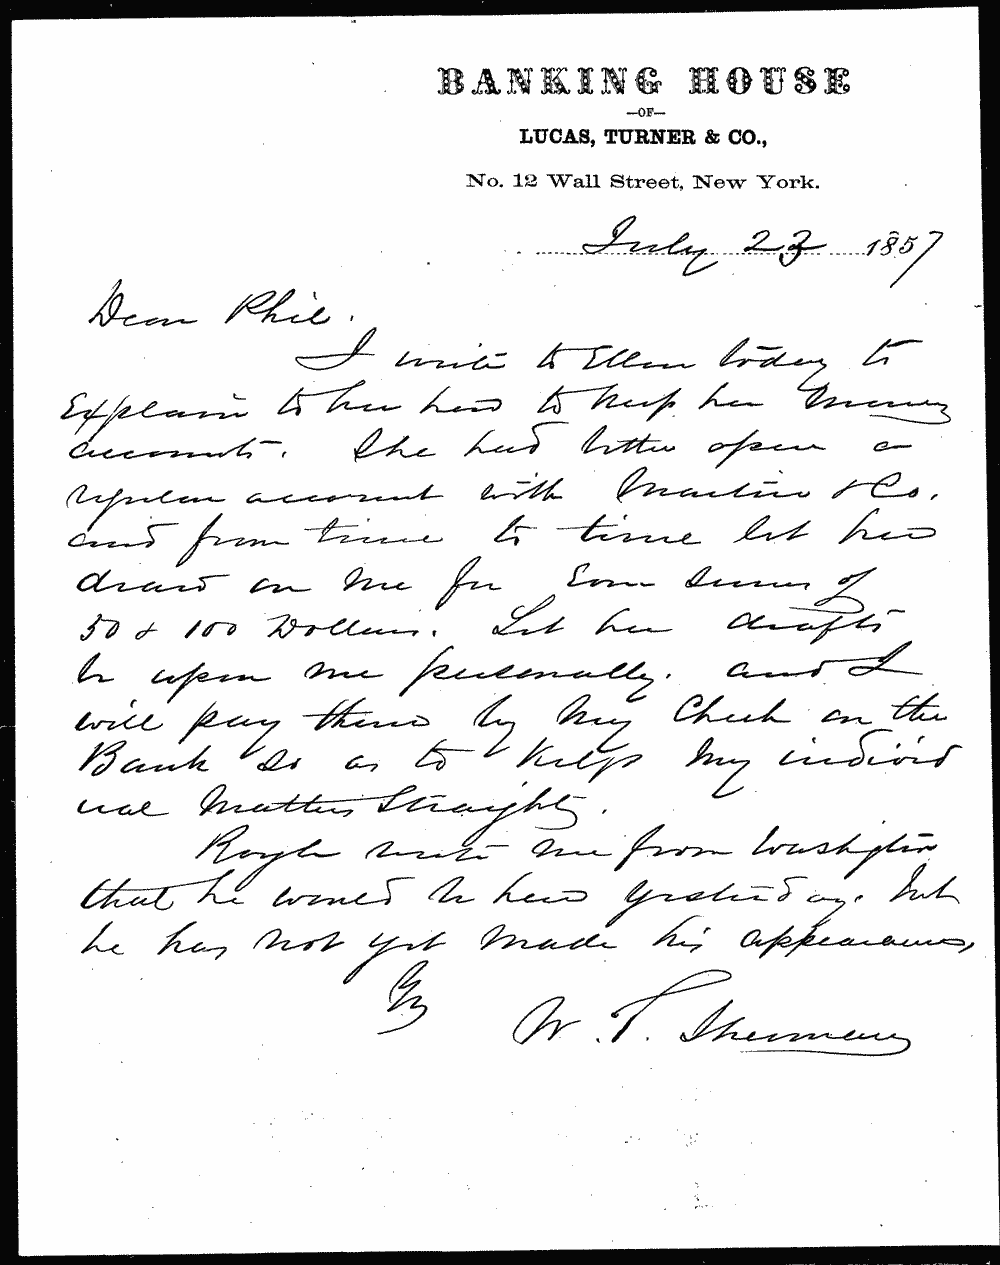 BANKING HOUSE
—OF—
LUCAS, TURNER & CO.,
No. 12 Wall Street, New York.
July 23 1857
Dear Phil.
I write to Ellen today to
Explain to her how to keep her Money
accounts. She had better open a
regular account with Martin & Co.
and from time to time let her
draw on me for Even sums of
50 & 100 Dollars. Let her drafts
be upon me personally. and I
will pay them by my Check on the
Bank so as to keep my individ
ual Matters Straight.
write me from Washington
that he would be here yesterday. but
he has not yet made his appearance,
Yrs
W. T. Sherman